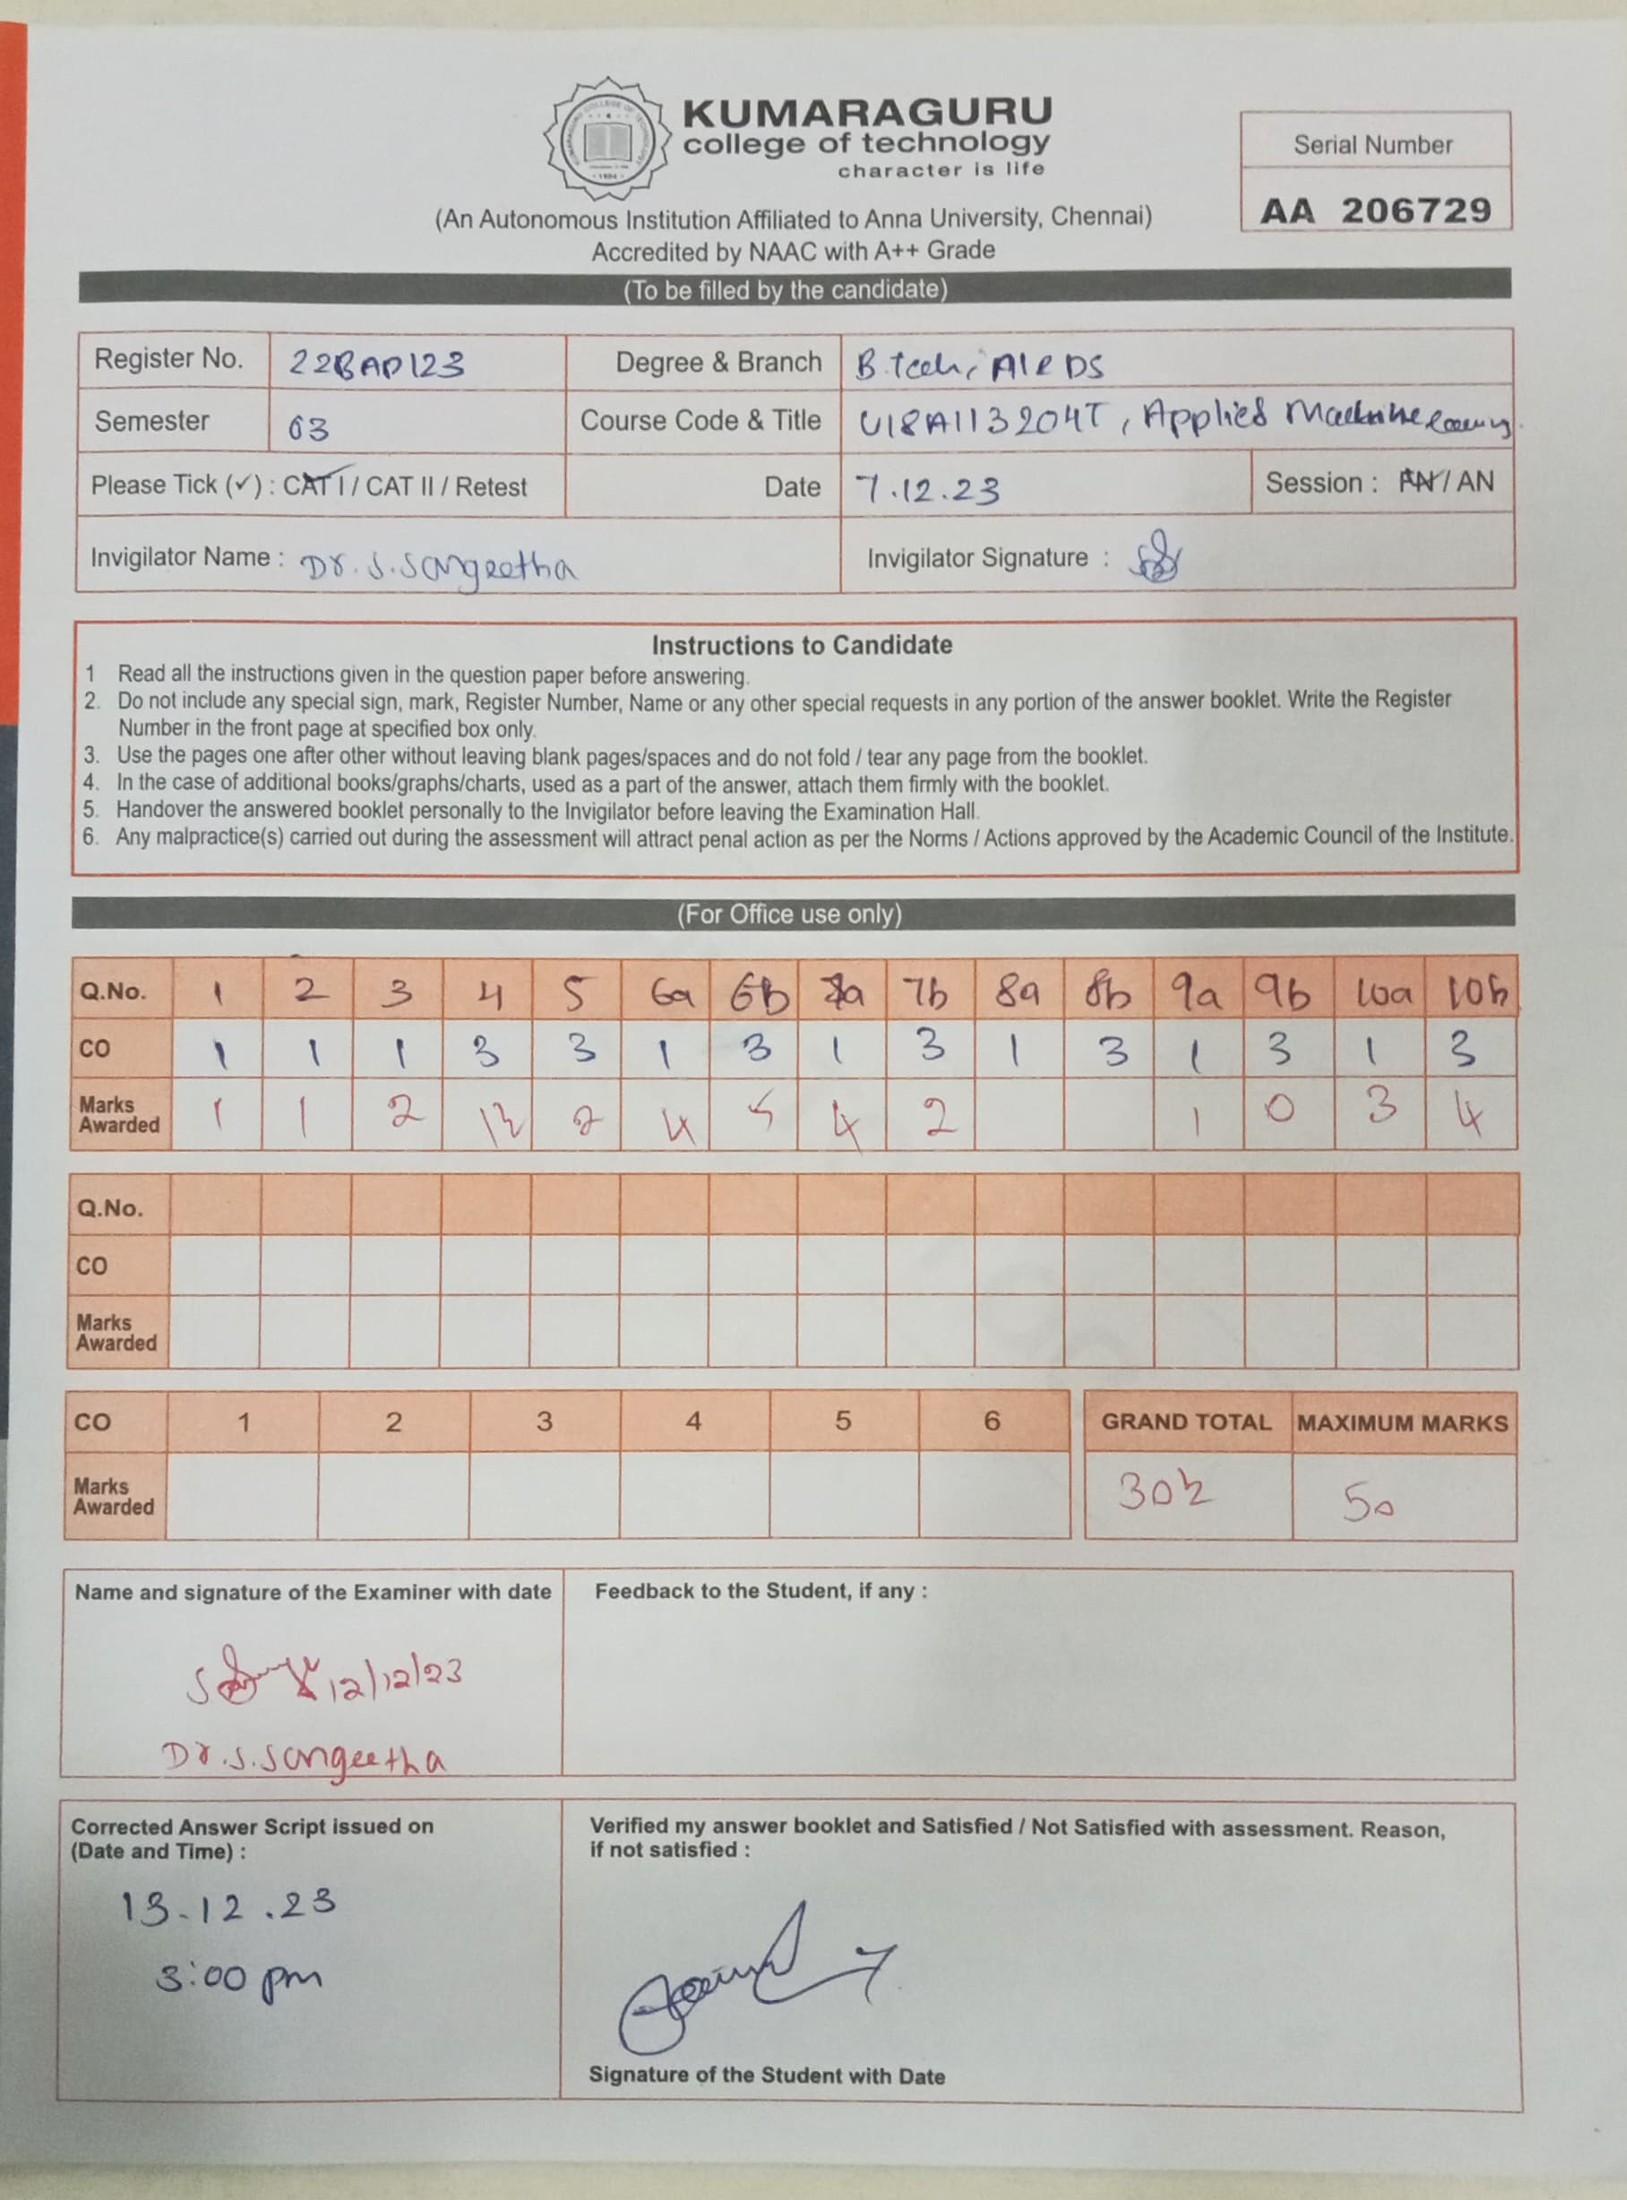 KUMARAGURU
college of technology
character is life
(An Autonomous Institution Affiliated to Anna University, Chennai)
Accredited by NAAC with A++ Grade
Serial Number
AA 206729
(To be filled by the candidate)
Register No. 22BAD123 Degree & Branch B.Tech, AI & DS
Semester 03 Course Code & Title U18AI13204T, Applied Machine
Please Tick (✓) : CAT I / CAT II / Retest Date 7.12.23 Session : FN / AN
Invigilator Name : Dr. S. Sangeetha Invigilator Signature :
Instructions to Candidate
1 Read all the instructions given in the question paper before answering.
2. Do not include any special sign, mark, Register Number, Name or any other special requests in any portion of the answer booklet. Write the Register
Number in the front page at specified box only.
3. Use the pages one after other without leaving blank pages/spaces and do not fold / tear any page from the booklet.
4. In the case of additional books/graphs/charts, used as a part of the answer, attach them firmly with the booklet.
5. Handover the answered booklet personally to the Invigilator before leaving the Examination Hall.
6. Any malpractice(s) carried out during the assessment will attract penal action as per the Norms / Actions approved by the Academic Council of the Institute.
(For Office use only)
Q.No. 1 2 3 4 5 6a 6b 7a 7b 8a 8b 9a 9b 10a 10b
CO 1 1 1 3 3 1 3 1 3 1 3 1 3 1 3
Marks
Awarded 1 1 2 1½ 2 4 5 4 2 1 0 3 4
Q.No.
CO
Marks
Awarded
CO 1 2 3 4 5 6 GRAND TOTAL MAXIMUM MARKS
Marks
Awarded 30½ 50
Name and signature of the Examiner with date
12/12/23
Dr. S. Sangeetha
Feedback to the Student, if any :
Corrected Answer Script issued on
(Date and Time) :
13-12.23
3:00 pm
Verified my answer booklet and Satisfied / Not Satisfied with assessment. Reason,
if not satisfied :
Signature of the Student with Date